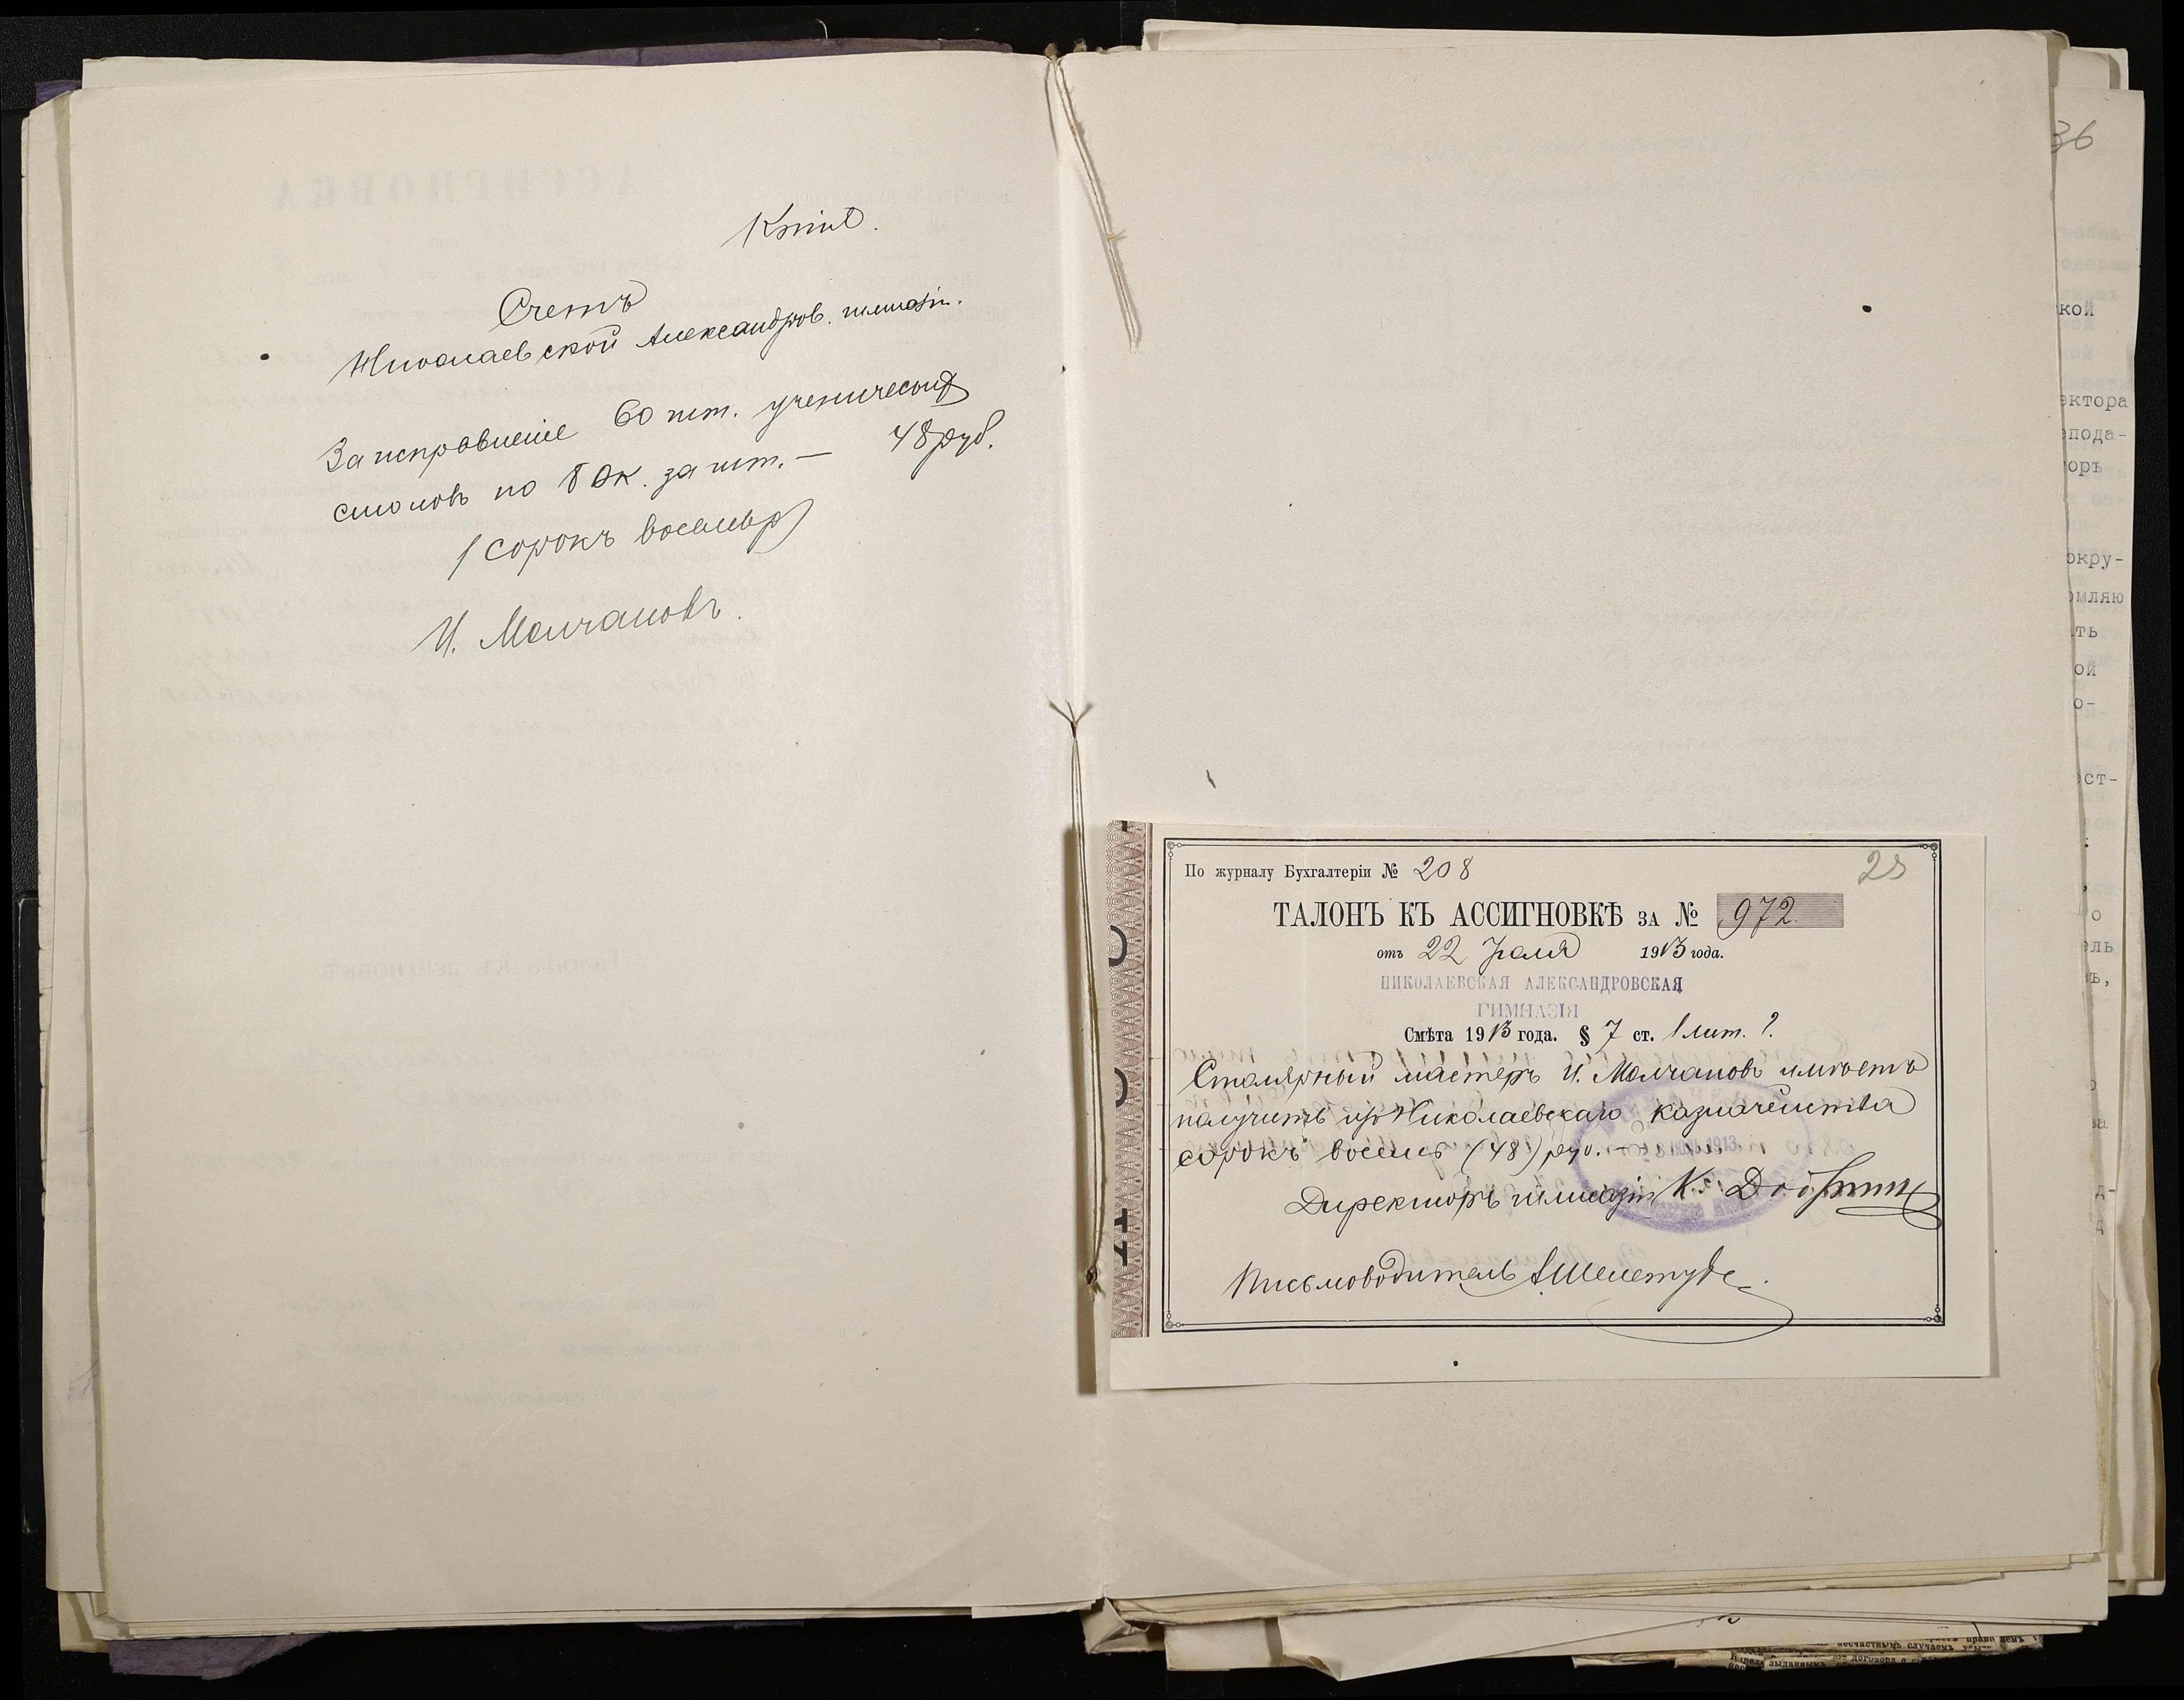 Копія.
Счетъ
Николаевской Александров. гимназіи.
За исправленіе 60 шт. ученическихъ
столовъ по 80к. за шт. — 48 руб.
(сорокъ восемь р)
И. Молчановъ.
36
кой
ектора
епода-
оръ
окру-
омляю
ть
ой
о-
ест-
о
ель
ъ,
По журналу Бухгалтеріи № 208
ТАЛОНЪ КЪ АССИГНОВКѢ ЗА № 972.
отъ 22 Іюля 1913 года.
НИКОЛАЕВСКАЯ АЛЕКСАНДРОВСКАЯ
ГИМНАЗІЯ
Смѣта 1913 года. § 7 ст. 1 лит.
Столярный мастеръ И. Молчановъ имѣетъ
получить изъ Николаевскаго казначейства
сорокъ восемь (48) руб.
Директоръ гимназіи К.
Письмоводитель
несчастнымъ случаемъ